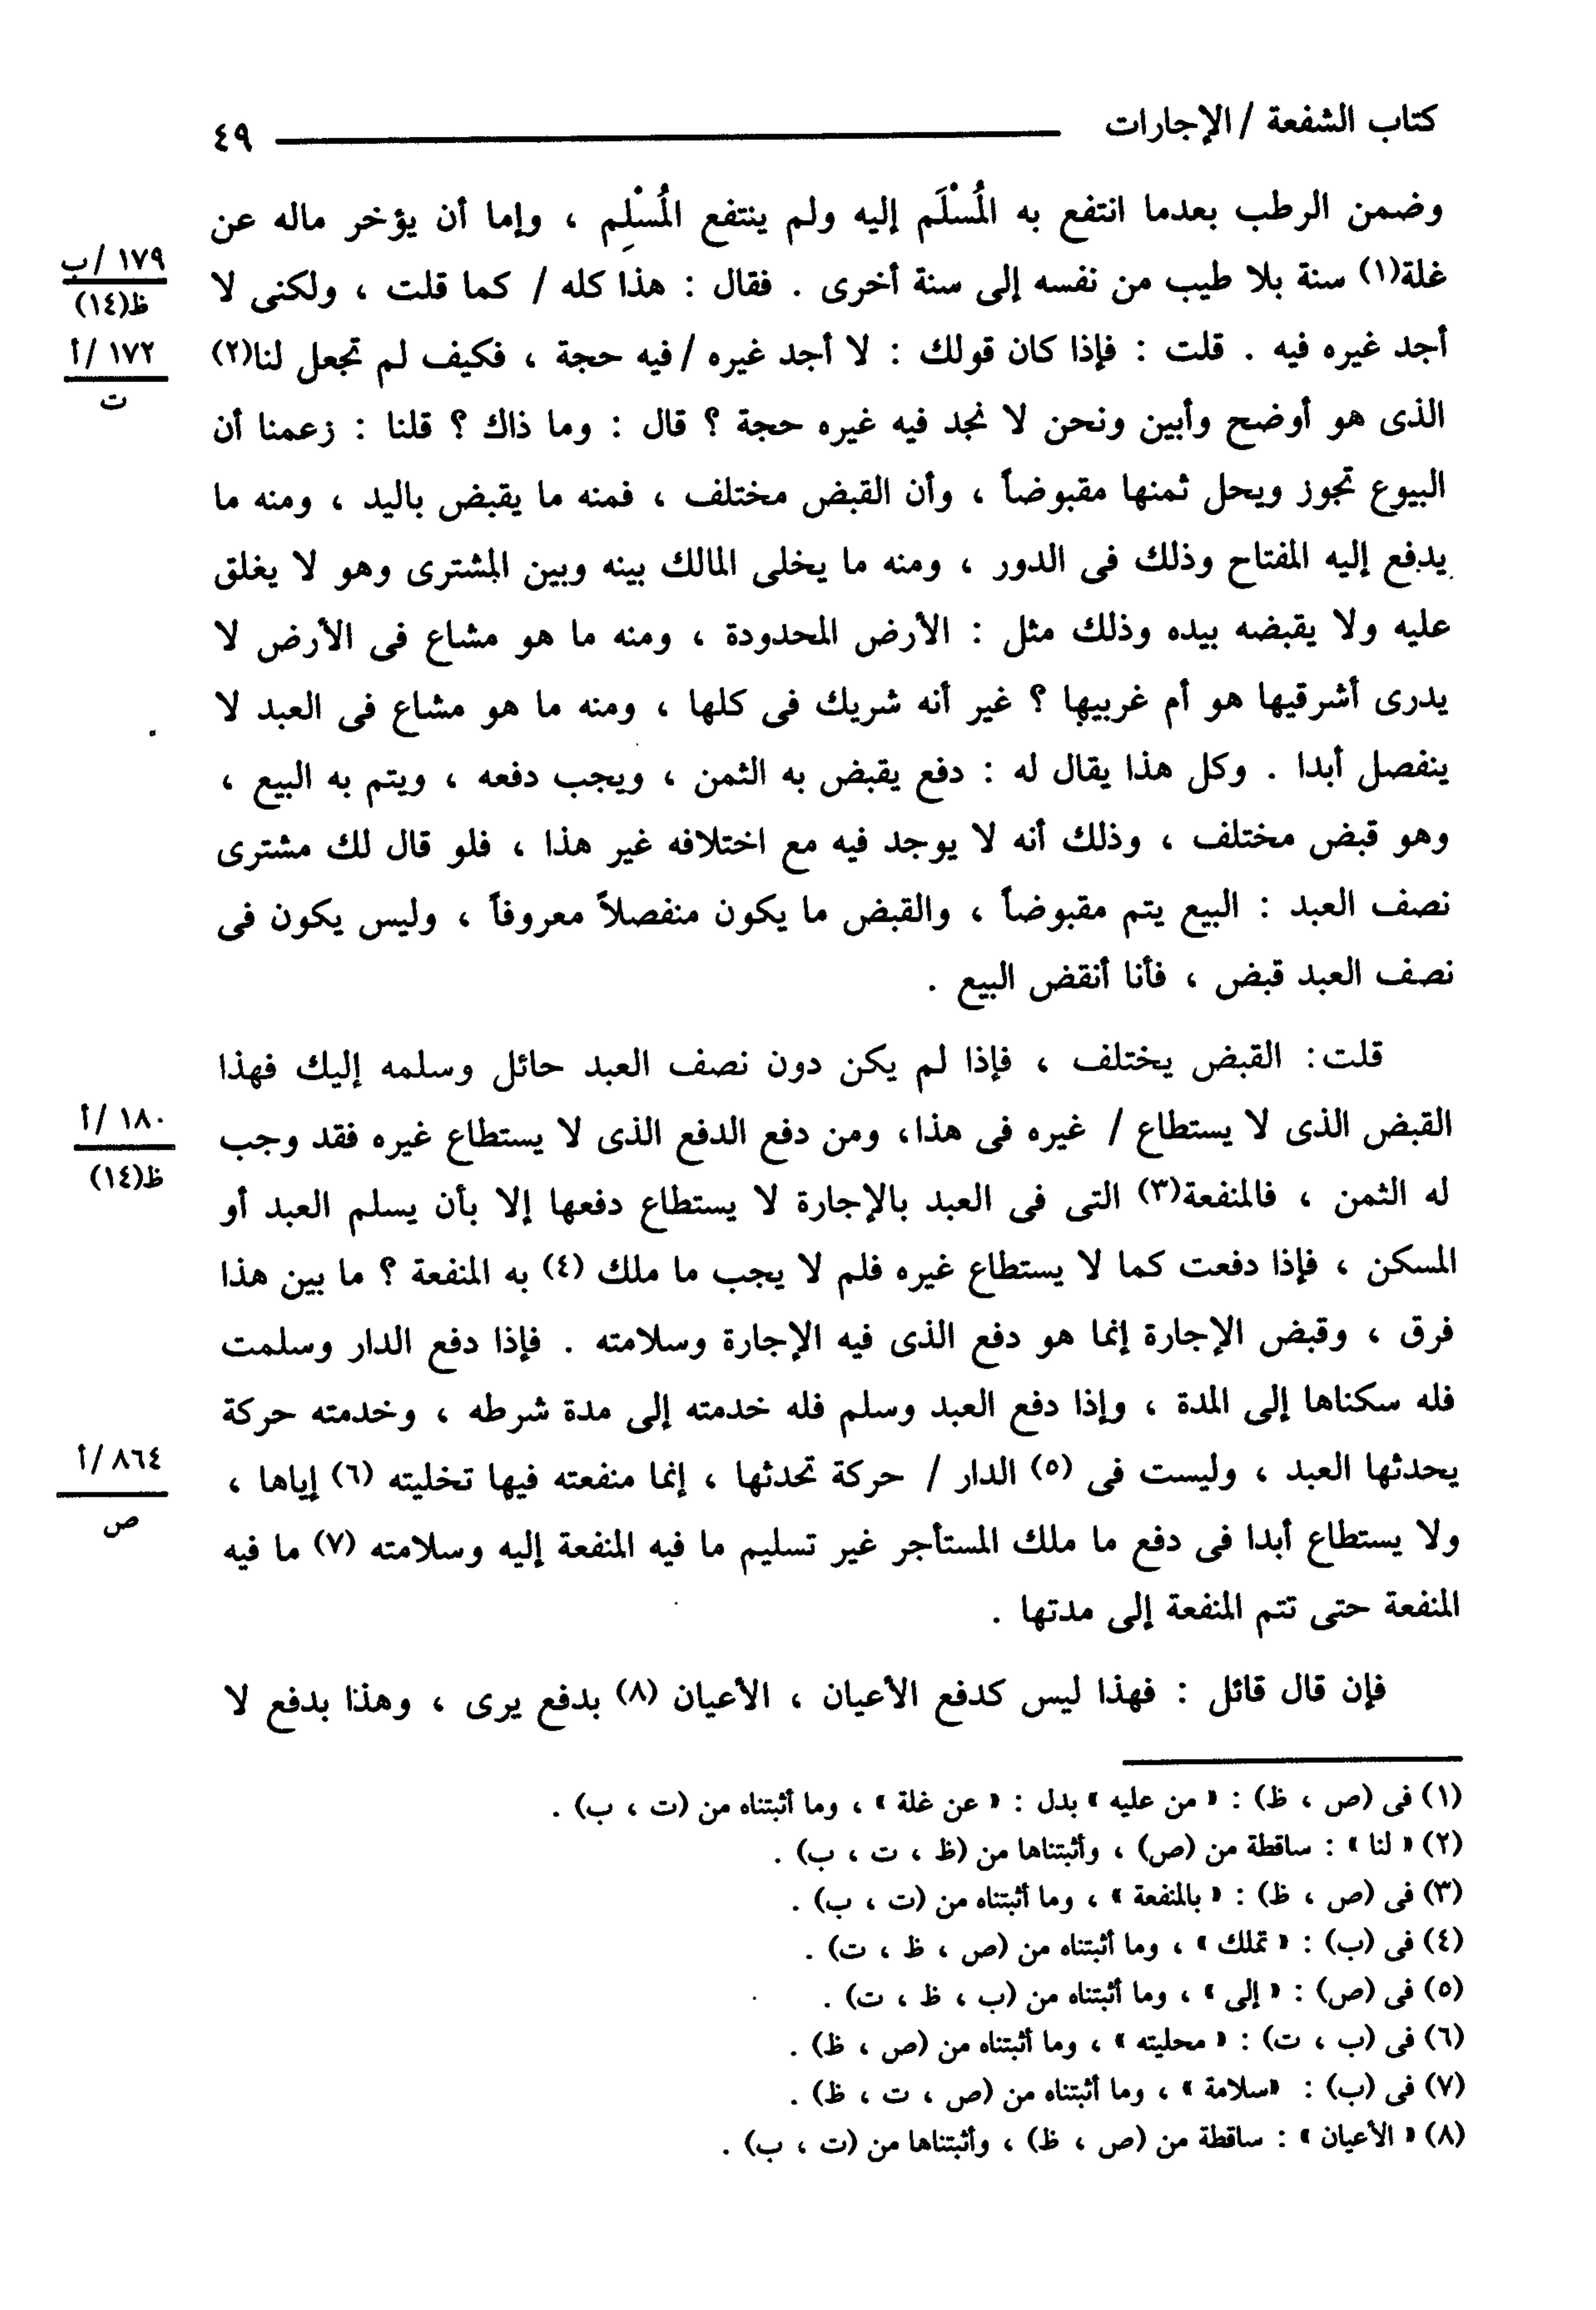 كتاب الشفعة / الإجارات ــــــــــ ٤٩
وضمن الرطب بعدما انتفع به المُسْلَم إليه ولم ينتفع المُسْلِم ، وإما أن يؤخر ماله عن
غلة(١) سنة بلا طيب من نفسه إلى سنة أخرى . فقال : هذا كله / كما قلت ، ولكنى لا
١٧٩ /ب
ظ(١٤)
أجد غيره فيه . قلت : فإذا كان قولك : لا أجد غيره / فيه حجة ، فكيف لم تجعل لنا(٢)
١٧٢ /أ
ت
الذى هو أوضح وأبين ونحن لا نجد فيه غيره حجة ؟ قال : وما ذاك ؟ قلنا : زعمنا أن
البيوع تجوز ويحل ثمنها مقبوضاً ، وأن القبض مختلف ، فمنه ما يقبض باليد ، ومنه ما
يدفع إليه المفتاح وذلك فى الدور ، ومنه ما يخلى المالك بينه وبين المشترى وهو لا يغلق
عليه ولا يقبضه بيده وذلك مثل : الأرض المحدودة ، ومنه ما هو مشاع فى الأرض لا
يدرى أشرقيها هو أم غربيها ؟ غير أنه شريك فى كلها ، ومنه ما هو مشاع فى العبد لا
ينفصل أبدا . وكل هذا يقال له : دفع يقبض به الثمن ، ويجب دفعه ، ويتم به البيع ،
وهو قبض مختلف ، وذلك أنه لا يوجد فيه مع اختلافه غير هذا ، فلو قال لك مشترى
نصف العبد : البيع يتم مقبوضاً ، والقبض ما يكون منفصلاً معروفاً ، وليس يكون فى
نصف العبد قبض ، فأنا أنقض البيع .
قلت : القبض يختلف ، فإذا لم يكن دون نصف العبد حائل وسلمه إليك فهذا
القبض الذى لا يستطاع / غيره فى هذا، ومن دفع الدفع الذى لا يستطاع غيره فقد وجب
١٨٠ /أ
ظ(١٤)
له الثمن ، فالمنفعة(٣) التى فى العبد بالإجارة لا يستطاع دفعها إلا بأن يسلم العبد أو
المسكن ، فإذا دفعت كما لا يستطاع غيره فلم لا يجب ما ملك (٤) به المنفعة ؟ ما بين هذا
فرق ، وقبض الإجارة إنما هو دفع الذى فيه الإجارة وسلامته . فإذا دفع الدار وسلمت
فله سكناها إلى المدة ، وإذا دفع العبد وسلم فله خدمته إلى مدة شرطه ، وخدمته حركة
يحدثها العبد ، وليست فى (٥) الدار / حركة تحدثها ، إنما منفعته فيها تخليته (٦) إياها ،
٨٦٤ /أ
ص
ولا يستطاع أبدا فى دفع ما ملك المستأجر غير تسليم ما فيه المنفعة إليه وسلامته (٧) ما فيه
المنفعة حتى تتم المنفعة إلى مدتها .
فإن قال قائل : فهذا ليس كدفع الأعيان ، الأعيان (٨) بدفع يرى ، وهذا بدفع لا
(١) فى (ص ، ظ) : « من عليه » بدل : « عن غلة » ، وما أثبتناه من (ت ، ب) .
(٢) « لنا » : ساقطة من (ص) ، وأثبتناها من (ظ ، ت ، ب) .
(٣) فى (ص ، ظ) : « بالمنفعة » ، وما أثبتناه من (ت ، ب) .
(٤) فى (ب) : « تملك » ، وما أثبتناه من (ص ، ظ ، ت) .
(٥) فى (ص) : « إلى » ، وما أثبتناه من (ب ، ظ ، ت) .
(٦) فى (ب ، ت) : « محليته » ، وما أثبتناه من (ص ، ظ) .
(٧) فى (ب) : «سلامة » ، وما أثبتناه من (ص ، ت ، ظ) .
(٨) « الأعيان » : ساقطة من (ص ، ظ) ، وأثبتناها من (ت ، ب) .